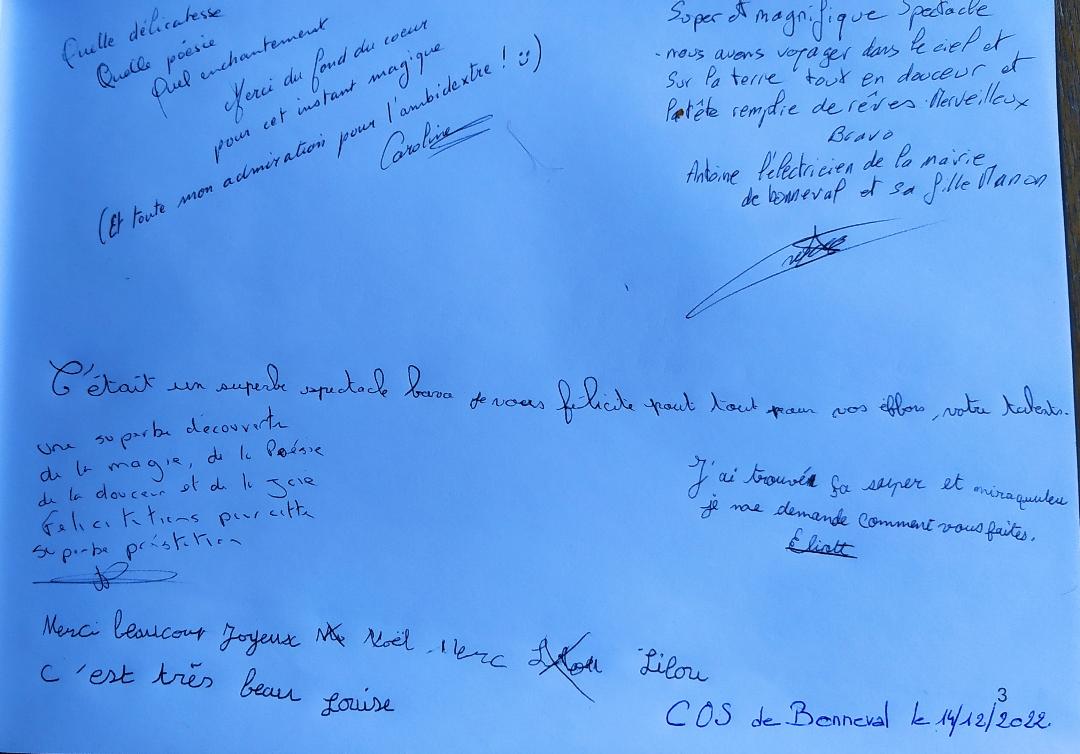 Quelle délicatesse
Quelle poésie
Quel enchantement
Merci du fond du coeur
pour cet instant magique
(Et toute mon admiration pour l'ambidextre ! :)
Caroline
Super et magnifique Spectacle
nous avons voyager dans le ciel et
Sur la terre tout en douceur et
la tête remplie de rêves Merveilleux
Bravo
Antoine l'électricien de la mairie
de bonneval et sa fille Manon
C'était un superbe spectacle bravo je vous félicite pout tout pour vos éffors, votre talents.
une superbe découverte
de la magie, de la Poésie
de la douceur et de la Joie
Felicitations pour cette
superbe préstation
J'ai trouvér ça super et miraquuleu
je me demande comment vous faites.
Eliott
Merci beaucoup Joyeux Noël Merc Lilou
C'est très beau Louise
3
COS de Bonneval le 14/12/2022